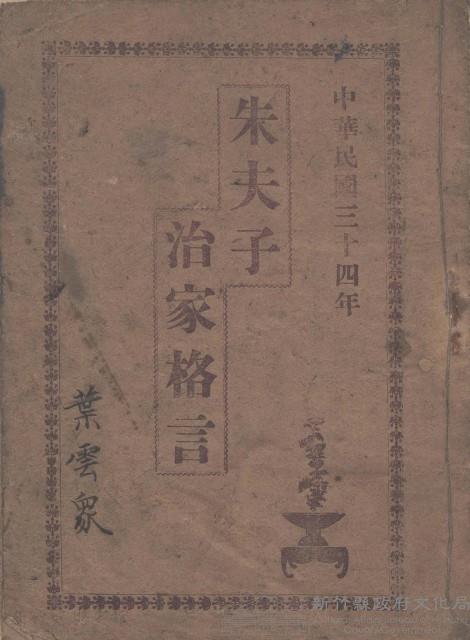 中華民國三十四年
朱夫子
治家格言
葉雲眾
新竹縣政府文化局